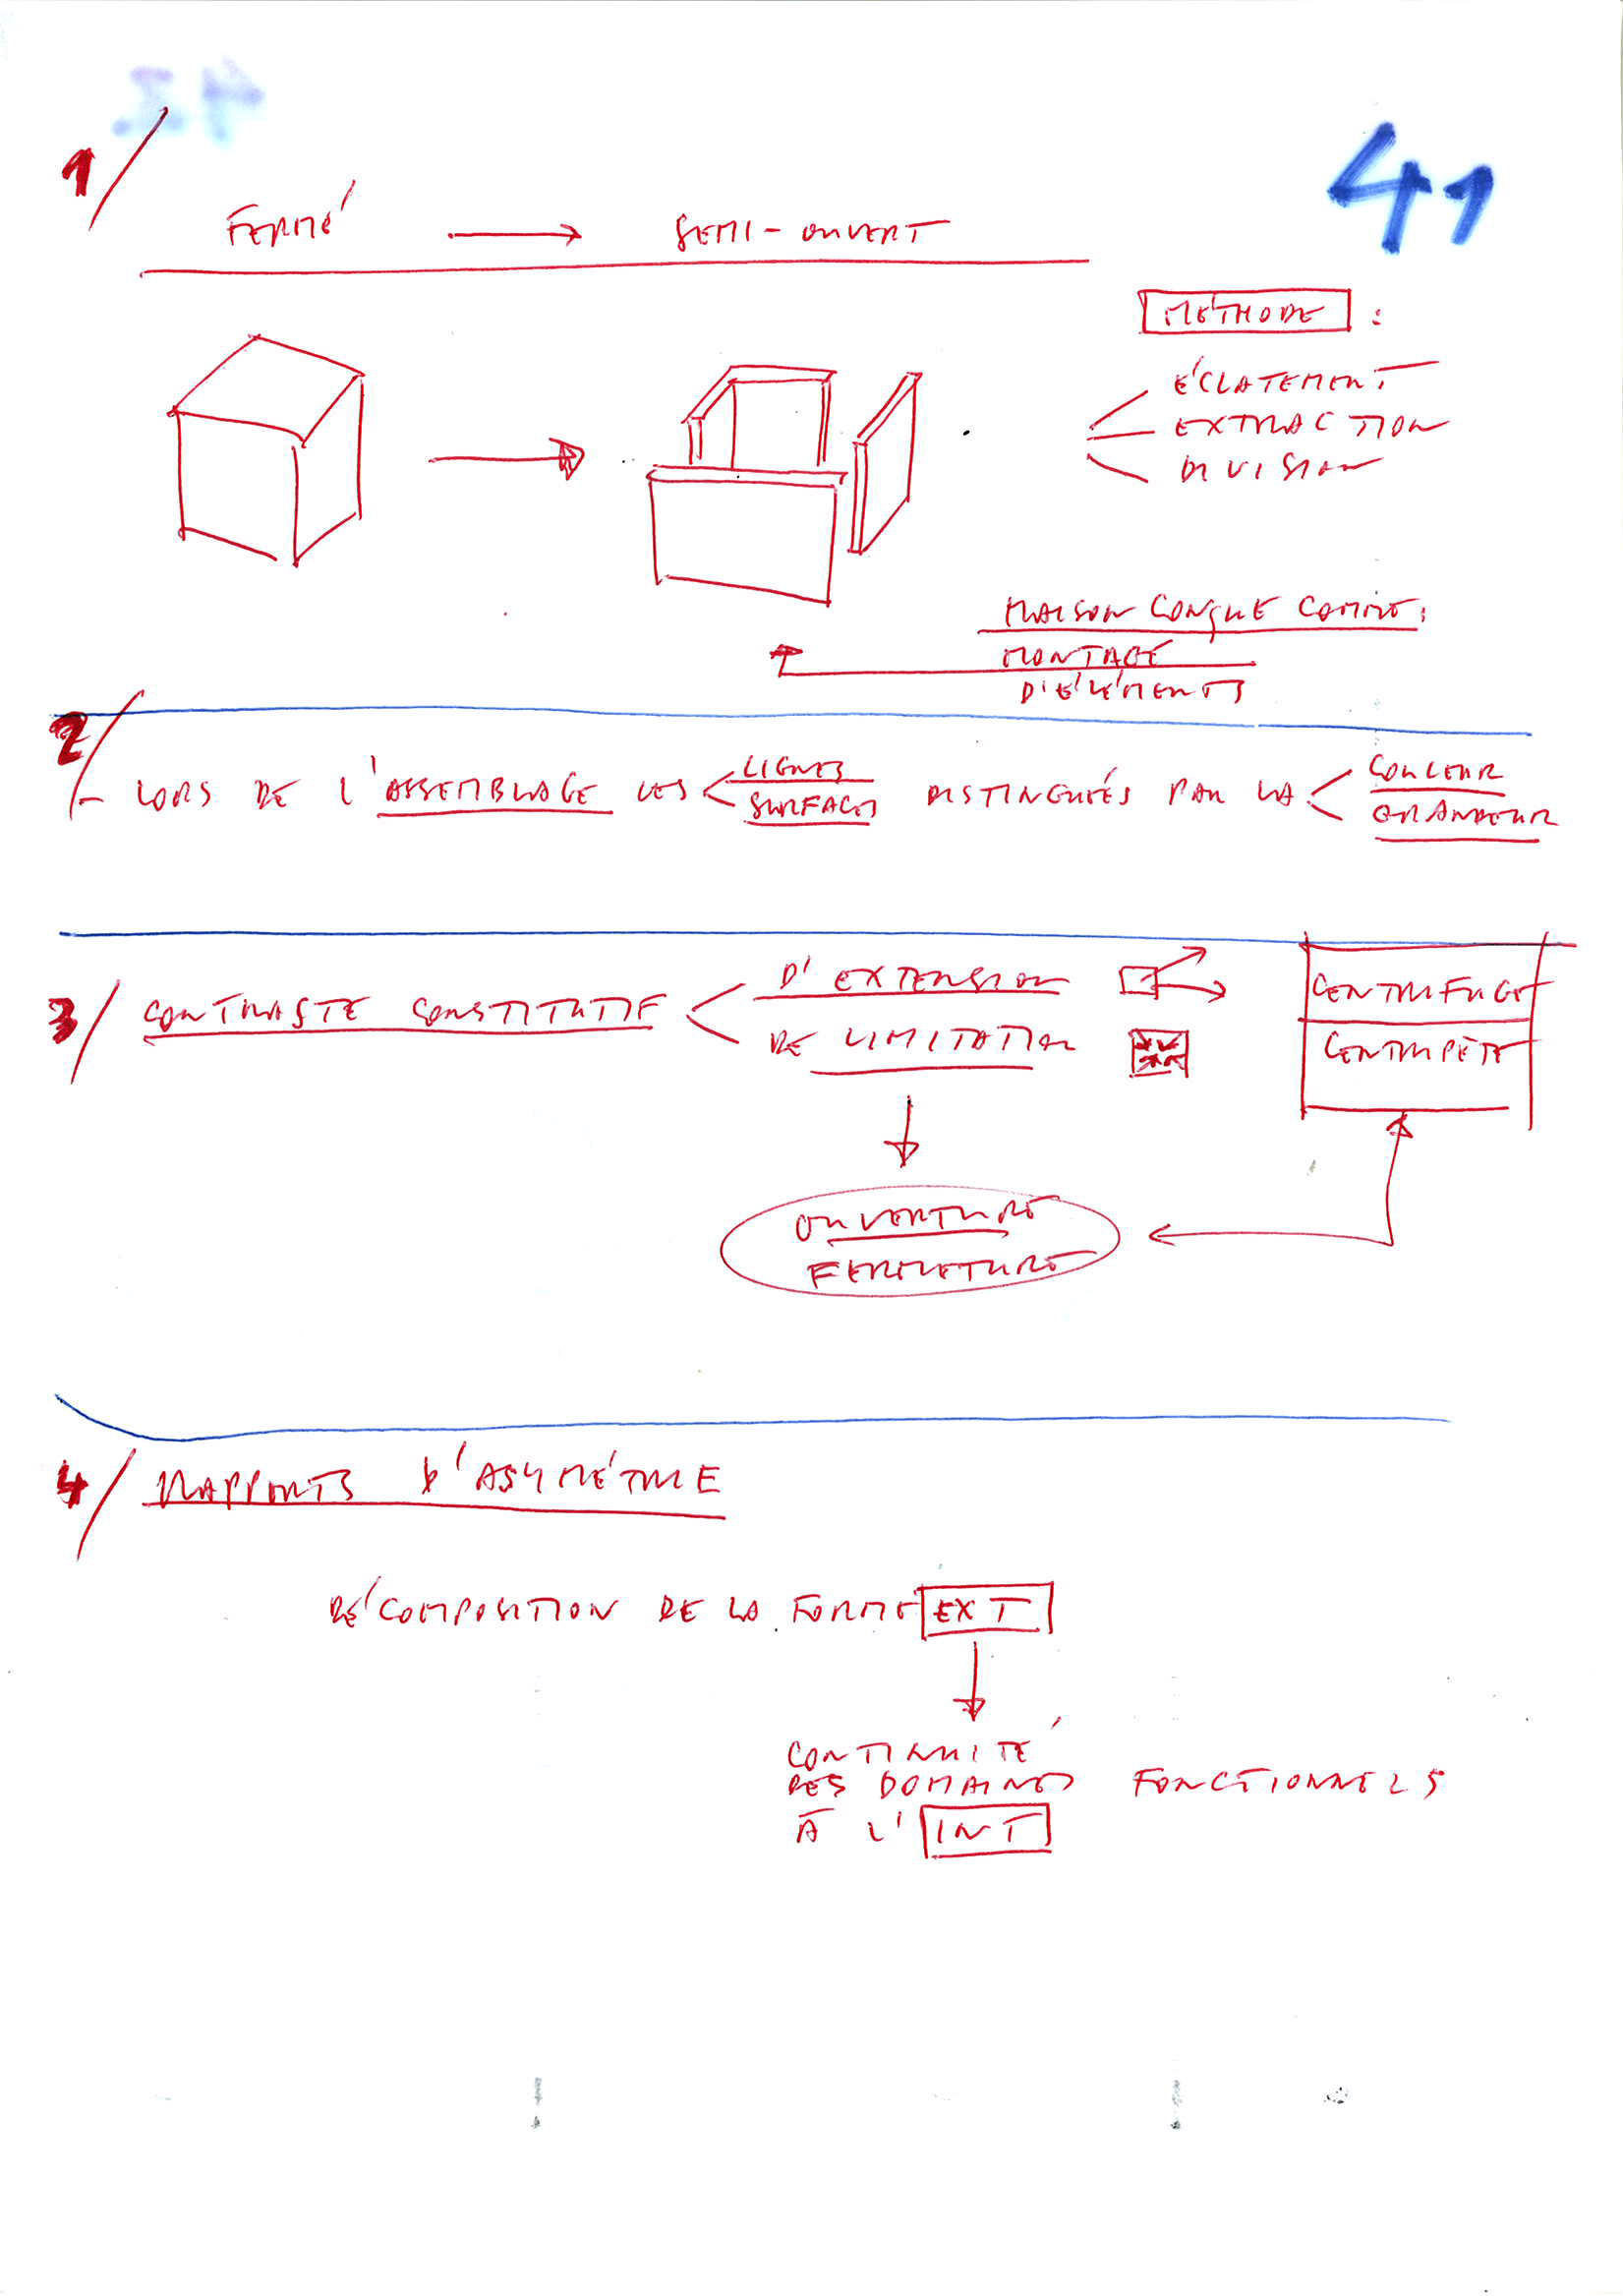 41
1/
FERMÉ → SEMI-OUVERT
MÉTHODE :
ÉCLATEMENT
EXTRACTION
DIVISION
MAISON CONÇUE COMME :
MONTAGE
D'ÉLÉMENTS
2/
- LORS DE L'ASSEMBLAGE LES < LIGNES SURFACES DISTINGUÉES PAR LA < COULEUR GRANDEUR
3/ CONTRASTE CONSTITUTIF < D'EXTENSION
DE LIMITATION
CENTRIFUGE
CENTRIPÈTE
OUVERTURE
FERMETURE
4/ RAPPORTS D'ASYMÉTRIE
DÉCOMPOSITION DE LA FORME EXT
CONTINUITÉ
DES DOMAINES FONCTIONNELS
À L'INT